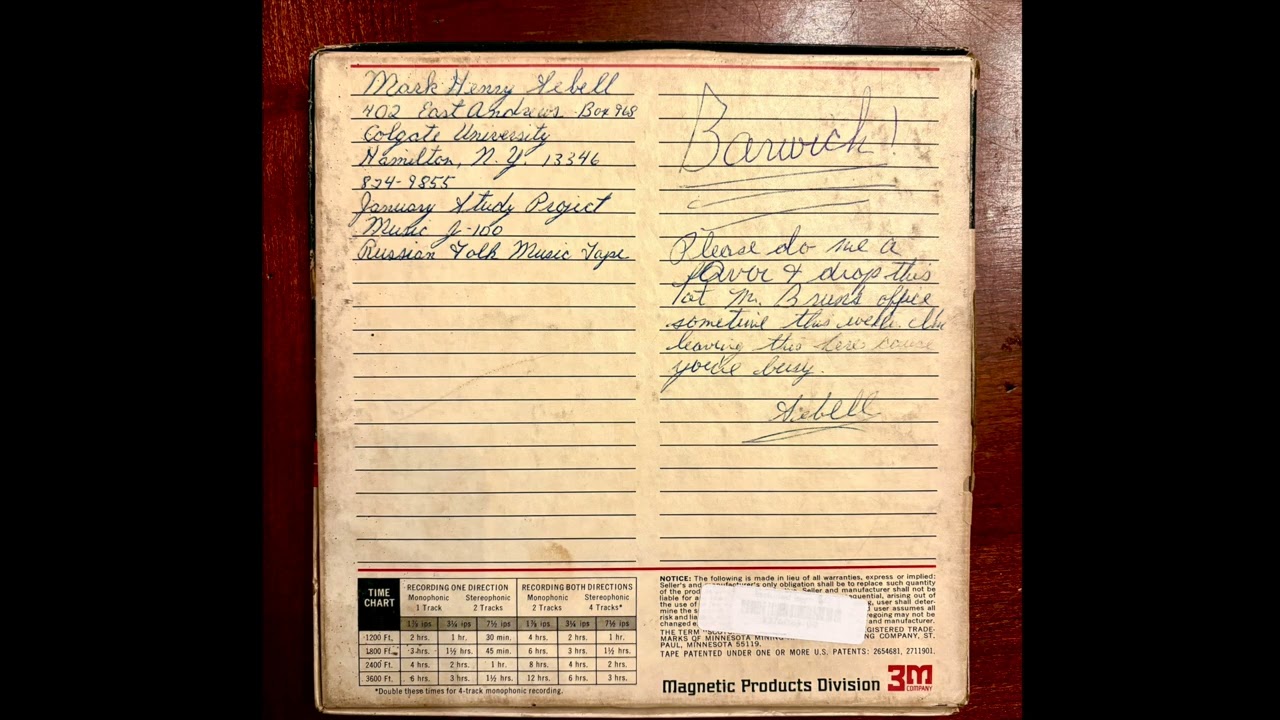 Mark Henry Sebell
402 East Andrews Box 968
Colgate University
Hamilton, N.Y. 13346
824-9855
January Study Project
Music J-100
Russian Folk Music Tape
Barwich!
Please do me a
favor & drop this
at Mr. Brun's office
sometime this week. I'm
leaving this here cause
you're busy.
Sebell
TIME CHART
RECORDING ONE DIRECTION RECORDING BOTH DIRECTIONS
Monophonic Stereophonic Monophonic Stereophonic
1 Track 2 Tracks 2 Tracks 4 Tracks*
1⅞ ips 3¾ ips 7½ ips 1⅞ ips 3¾ ips 7½ ips
1200 Ft. 2 hrs. 1 hr. 30 min. 4 hrs. 2 hrs. 1 hr.
1800 Ft. 3 hrs. 1½ hrs. 45 min. 6 hrs. 3 hrs. 1½ hrs.
2400 Ft. 4 hrs. 2 hrs. 1 hr. 8 hrs. 4 hrs. 2 hrs.
3600 Ft. 6 hrs. 3 hrs. 1½ hrs. 12 hrs. 6 hrs. 3 hrs.
*Double these times for 4-track monophonic recording.
NOTICE: The following is made in lieu of all warranties, express or implied:
Seller's and manufacturer's only obligation shall be to replace such quantity
of the prod Seller and manufacturer shall not be
liable for a quential, arising out of
the use of user shall deter-
mine the s user assumes all
risk and lia regoing may not be
changed e and manufacturer.
THE TERM "SCOT EGISTERED TRADE-
MARKS OF MINNESOTA MINING NG COMPANY, ST.
PAUL, MINNESOTA 55119.
TAPE PATENTED UNDER ONE OR MORE U.S. PATENTS: 2654681, 2711901.
Magnetic Products Division 3M
COMPANY